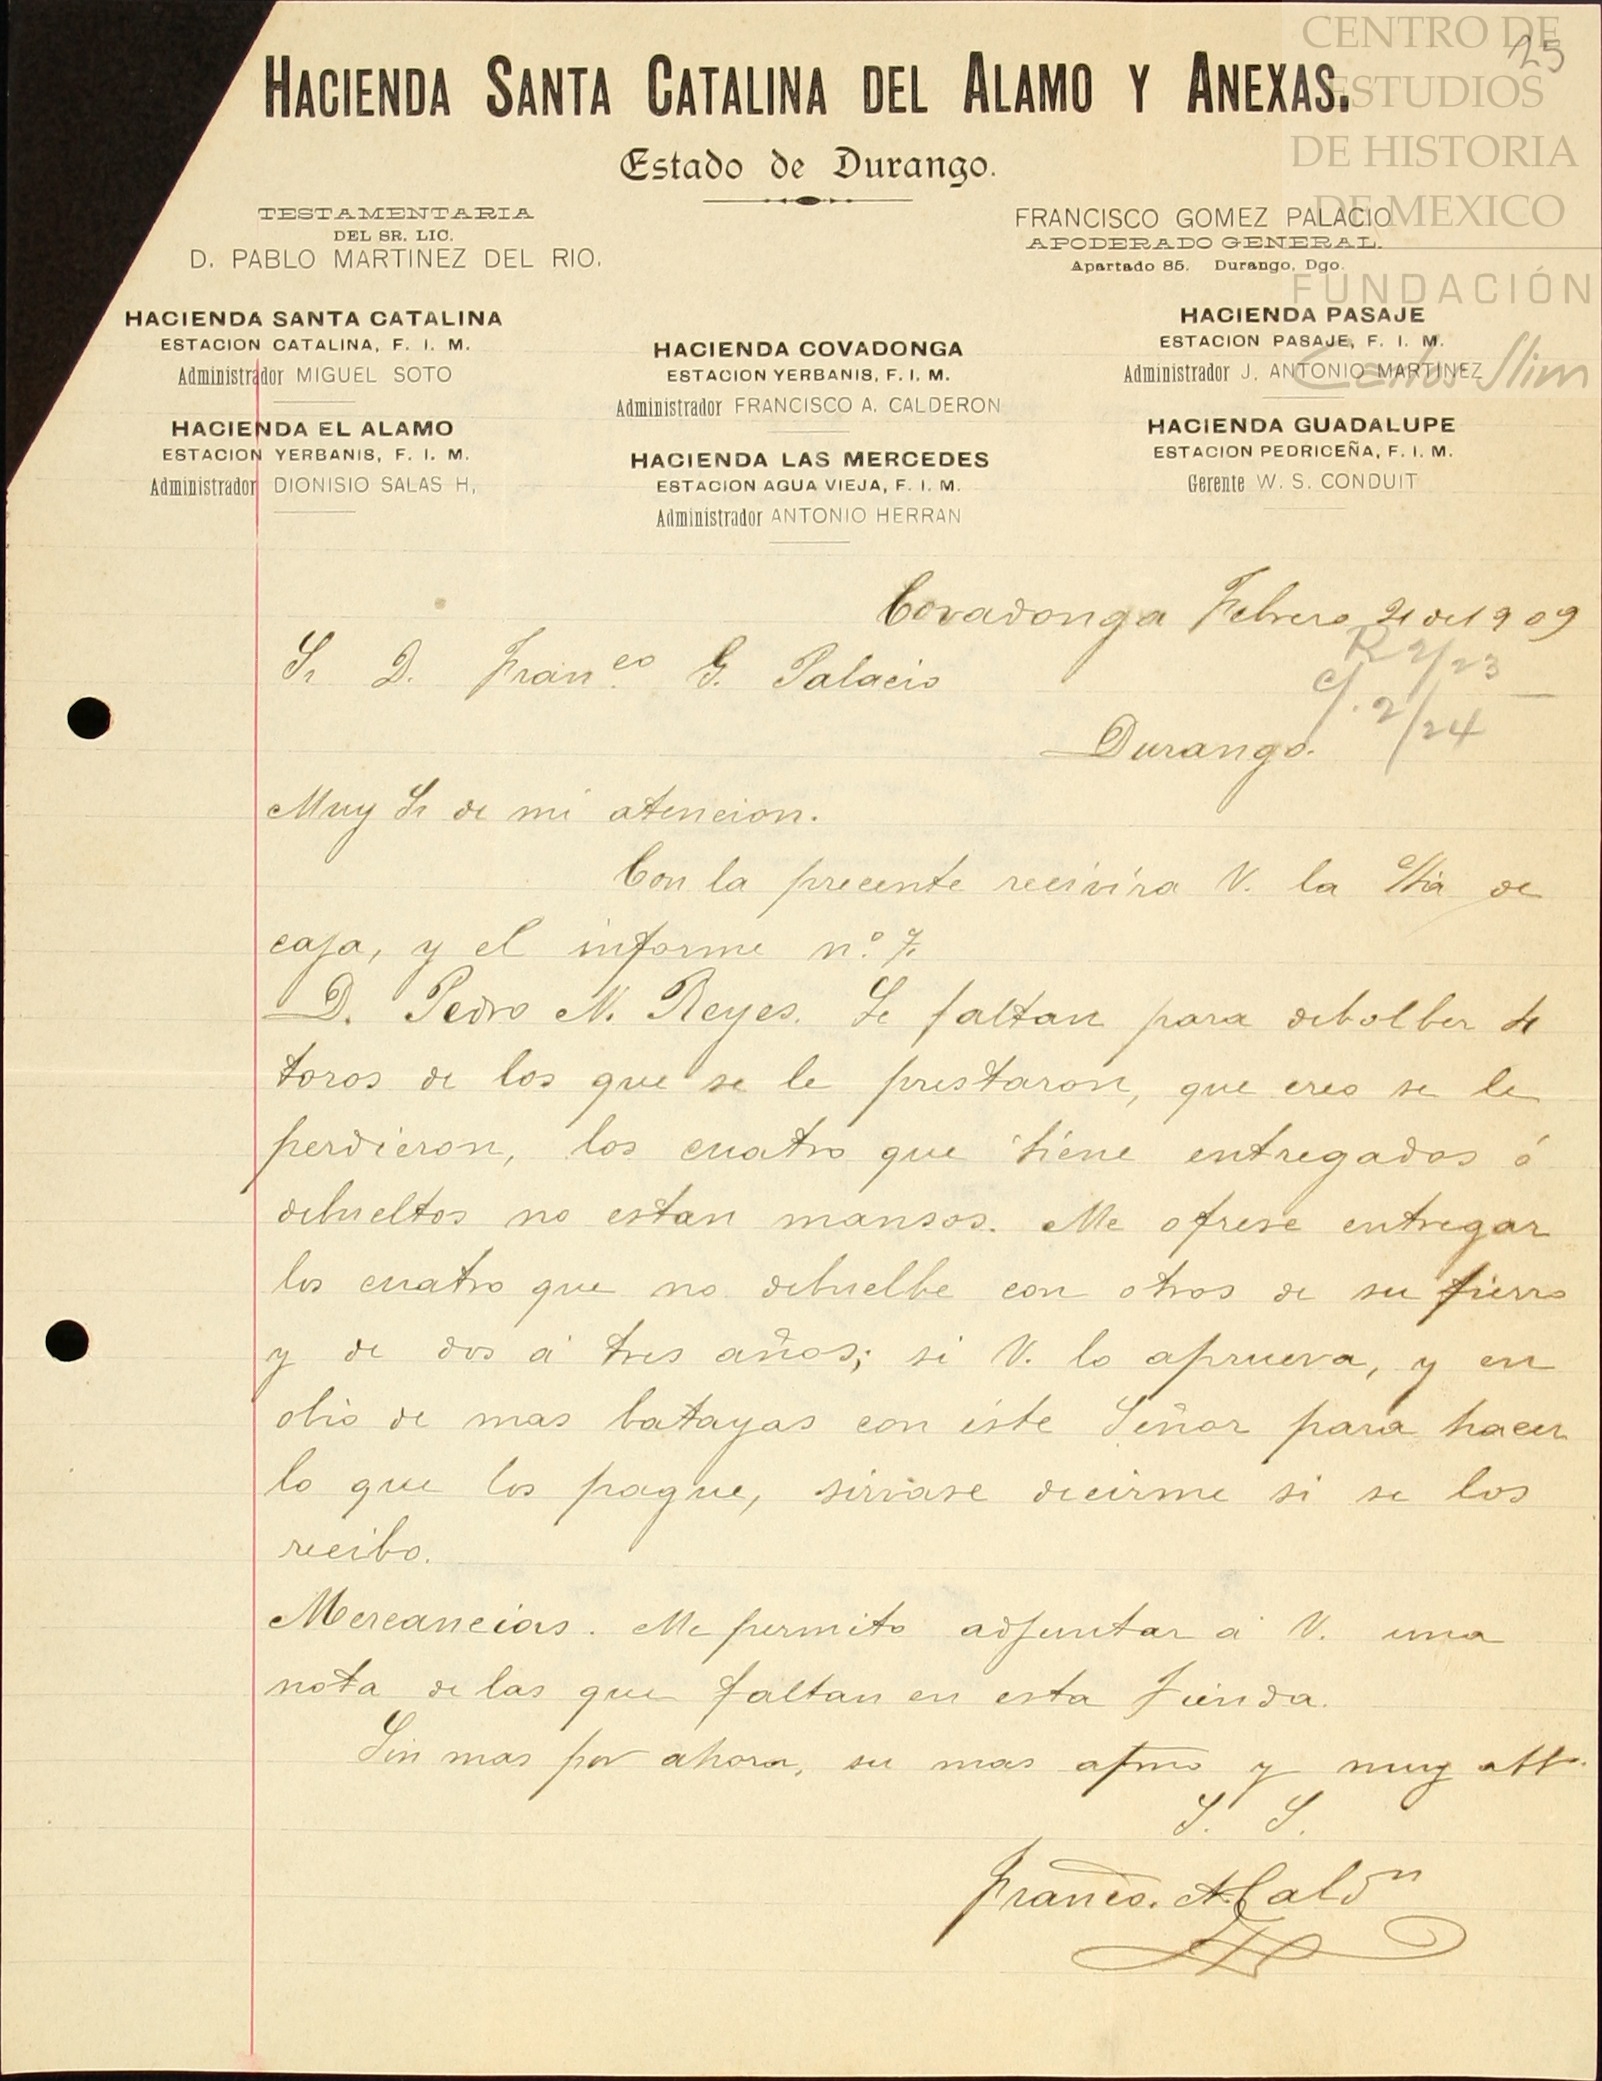 CENTRO DE
ESTUDIOS
DE HISTORIA
DE MEXICO
FUNDACIÓN
Carlos Slim
25
HACIENDA SANTA CATALINA DEL ALAMO Y ANEXAS.
Estado de Durango.
TESTAMENTARIA
DEL SR. LIC.
D. PABLO MARTINEZ DEL RIO.
FRANCISCO GOMEZ PALACIO
APODERADO GENERAL.
Apartado 85. Durango, Dgo.
HACIENDA SANTA CATALINA
ESTACION CATALINA, F. I. M.
Administrador MIGUEL SOTO
HACIENDA EL ALAMO
ESTACION YERBANIS, F. I. M.
Administrador DIONISIO SALAS H,
HACIENDA COVADONGA
ESTACION YERBANIS, F. I. M.
Administrador FRANCISCO A. CALDERON
HACIENDA LAS MERCEDES
ESTACION AGUA VIEJA, F. I. M.
Administrador ANTONIO HERRAN
HACIENDA PASAJE
ESTACION PASAJE, F. I. M.
Administrador J. ANTONIO MARTINEZ
HACIENDA GUADALUPE
ESTACION PEDRICEÑA, F. I. M.
Gerente W. S. CONDUIT
Covadonga Febrero 21 de 1909
R 2/23
c/. 2/24
Sr D. Franco G. Palacio
Durango.
Muy Sr de mi atencion.
Con la precente recivira V. la de
caja, y el informe n.º 7.
D. Pedro N. Reyes. Le faltan para debolber 4
toros de los que se le prestaron, que creo se le
perdieron, los cuatro que tiene entregados ó
debueltos no estan mansos. Me ofrese entregar
los cuatro que no debuelbe con otros de su fierro
y de dos á tres años; si V. lo aprueva, y en
obio de mas batayas con este Señor para hacer
lo que los pague, sirvase decirme si se los
recibo.
Mercancias. Me permito adjuntar á V. una
nota de las que faltan en esta Tienda.
Sin mas por ahora, su mas afmo y muy atto.
S. S.
Franco. A. Caldn